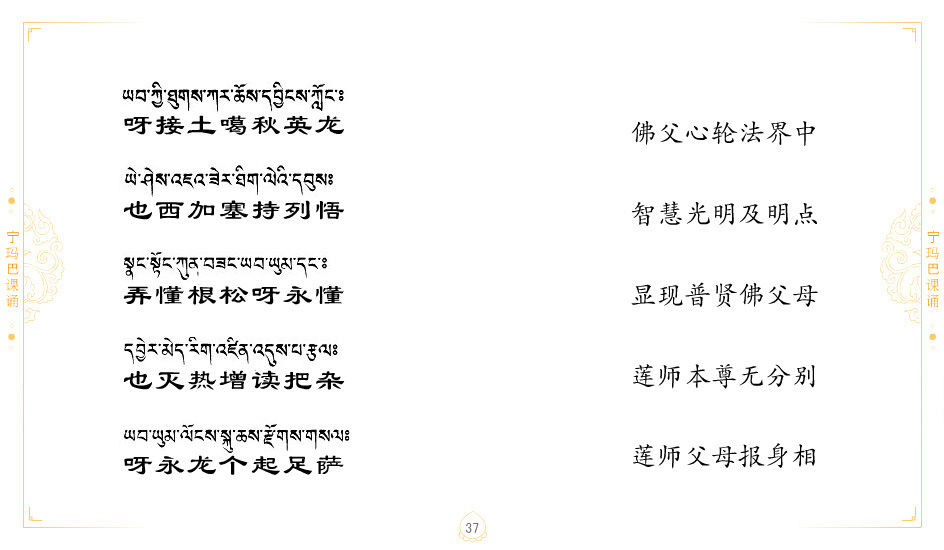 ཡབ་ཀྱི་ཐུགས་ཀར་ཆོས་དབྱིངས་ཀློང་ཿ
呀接土噶秋英龙
佛父心轮法界中
ཡེ་ཤེས་འཇའ་ཟེར་ཐིག་ལེའི་དབུསཿ
也西加塞持列悟
智慧光明及明点
སྣང་སྟོང་ཀུན་བཟང་ཡབ་ཡུམ་དང་ཿ
弄懂根松呀永懂
显现普贤佛父母
དབྱེར་མེད་རིག་འཛིན་འདུས་པ་རྩལཿ
也灭热增读把杂
莲师本尊无分别
ཡབ་ཡུམ་ལོངས་སྐུ་ཆས་རྫོགས་གསལཿ
呀永龙个起足萨
莲师父母报身相
宁玛巴课诵
宁玛巴课诵
37